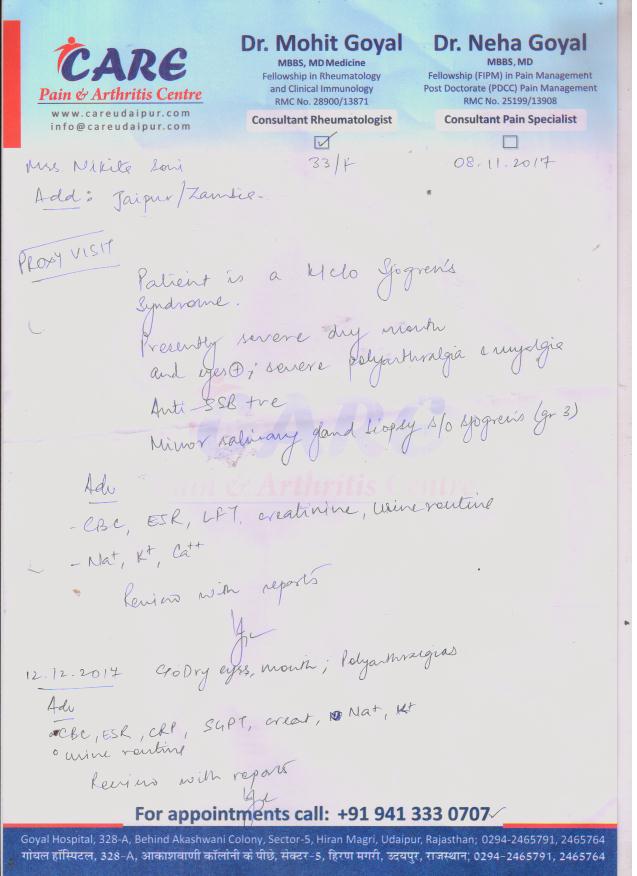 CARE
Pain & Arthritis Centre
www.careudaipur.com
info@careudaipur.com
Dr. Mohit Goyal
MBBS, MD Medicine
Fellowship in Rheumatology
and Clinical Immunology
RMC No. 28900/13871
Consultant Rheumatologist
Dr. Neha Goyal
MBBS, MD
Fellowship (FIPM) in Pain Management
Post Doctorate (PDCC) Pain Management
RMC No. 25199/13908
Consultant Pain Specialist
Mrs Nikita Soni 33/F 08.11.2017
Add: Jaipur/Zambia.
PROXY VISIT
Patient is a K/C/O Sjogren's
Syndrome.
Presently severe dry mouth
and eyes ⊕; severe polyarthralgia c myalgia
Anti-SSB +ve
Minor salivary gland biopsy s/o sjogren's (gr 3)
CARE
Pain & Arthritis Centre
Adv
- CBC, ESR, LFT, creatinine, urine routine
- Na+, K+, Ca++
Review with reports
12.12.2017 C/o Dry eyes, mouth; Polyarthralgias
Adv
CBC, ESR, CRP, SGPT, creat, Na+, K+
urine routine
Review with reports
For appointments call: +91 941 333 0707
Goyal Hospital, 328-A, Behind Akashwani Colony, Sector-5, Hiran Magri, Udaipur, Rajasthan; 0294-2465791, 2465764
गोयल हॉस्पिटल, 328-A, आकाशवाणी कॉलोनी के पीछे, सेक्टर-5, हिरण मगरी, उदयपुर, राजस्थान; 0294-2465791, 2465764